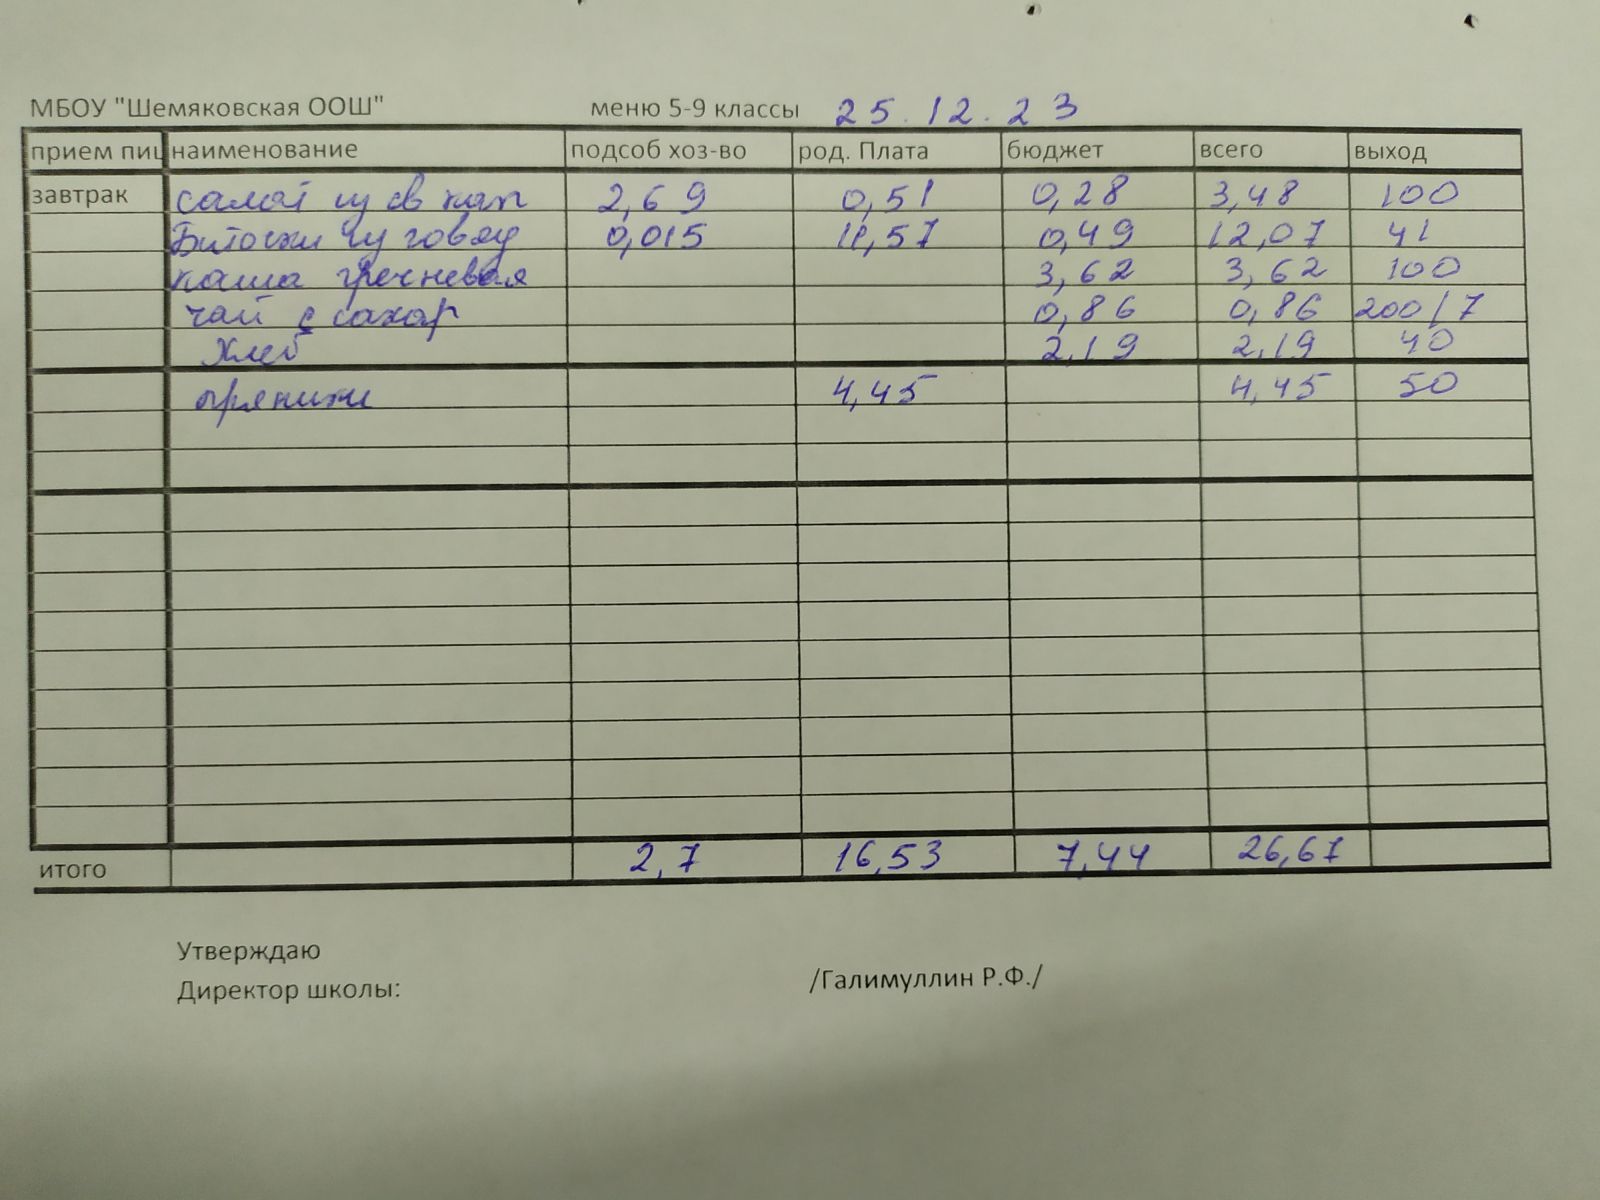 МБОУ "Шемяковская ООШ" меню 5-9 классы 25.12.23
прием пищ наименование подсоб хоз-во род. Плата бюджет всего выход
завтрак салат из св кап 2,69 0,51 0,28 3,48 100
Биточки из говяд 0,015 11,57 0,49 12,07 41
каша гречневая 3,62 3,62 100
чай с сахар 0,86 0,86 200/7
Хлеб 2,19 2,19 40
пряники 4,45 4,45 50
итого 2,7 16,53 7,44 26,67
Утверждаю
Директор школы: /Галимуллин Р.Ф./